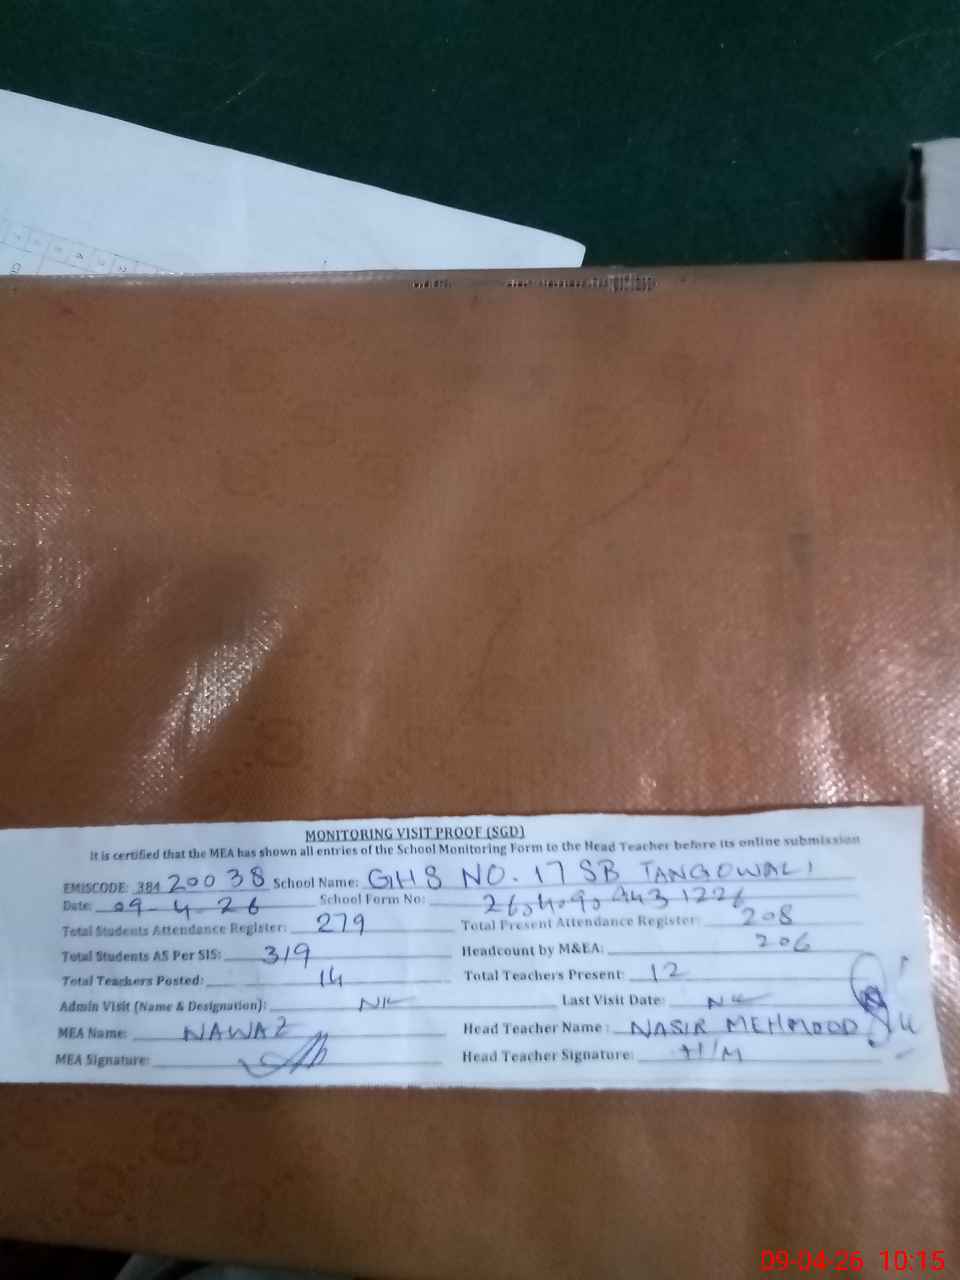 MONITORING VISIT PROOF (SGD)
It is certified that the MEA has shown all entries of the School Monitoring Form to the Head Teacher before its online submission
EMISCODE: 384 20038 School Name: GHS NO. 17 SB TANGOWALI
Date: 09-4-26 School Form No:
Total Students Attendance Register: 279 Total Present Attendance Register: 208
Total Students AS Per SIS: 319 Headcount by M&EA: 206
Total Teachers Posted: 14 Total Teachers Present: 12
Admin Visit (Name & Designation): NIL Last Visit Date: NIL
MEA Name: NAWAZ Head Teacher Name: NASIR MEHMOOD
MEA Signature: Head Teacher Signature: H/M
09-04-26 10:15